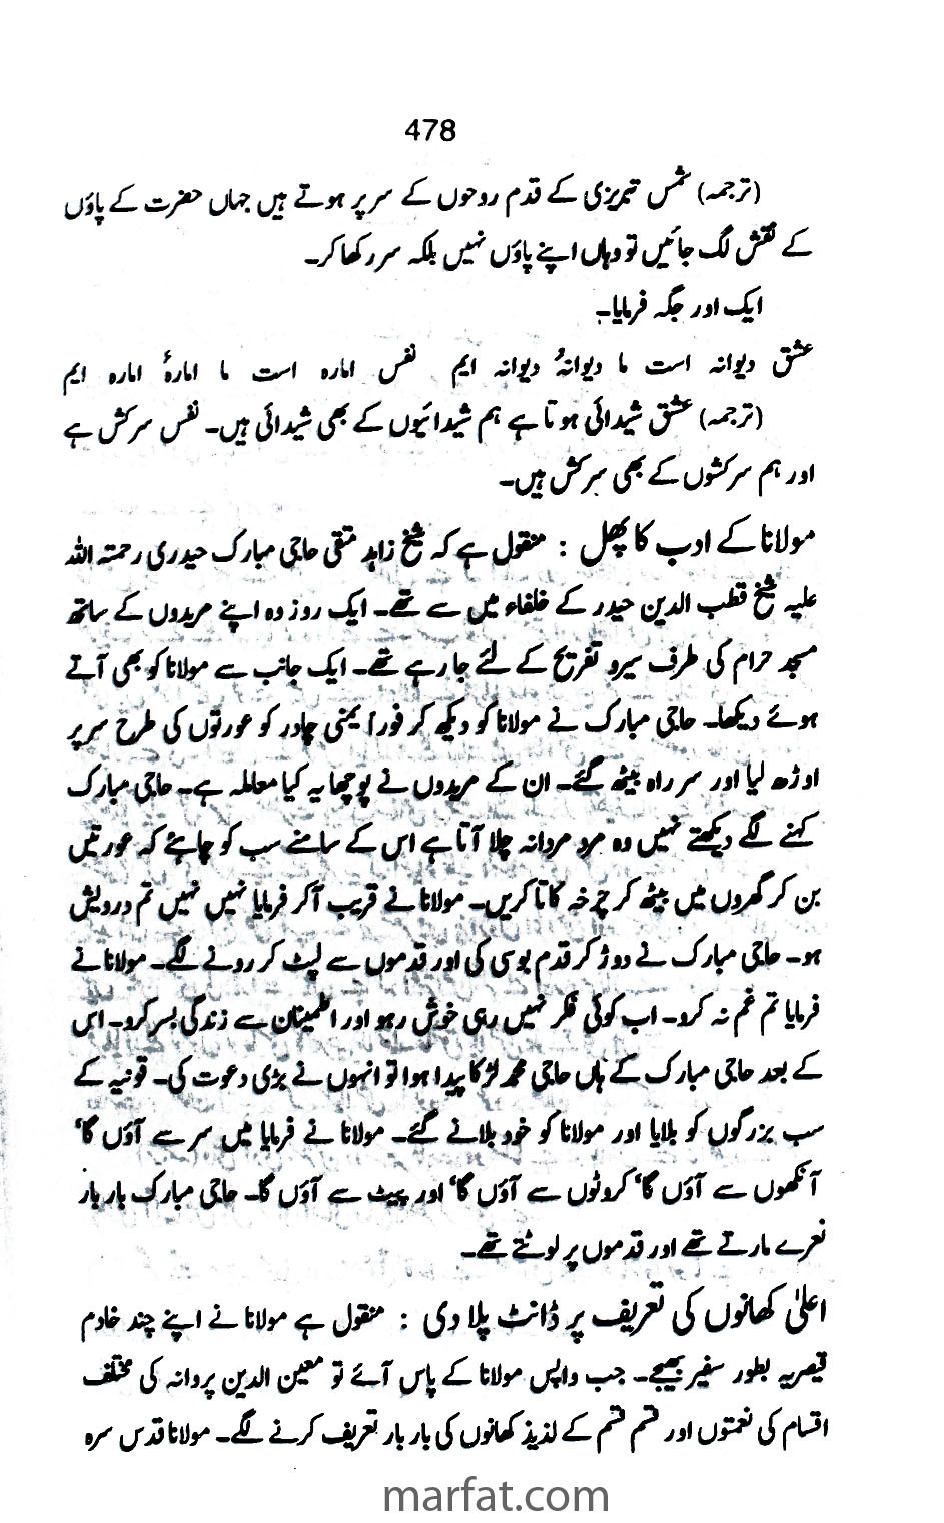 478
(ترجمہ) شمس تبریزی کے قدم روحوں کے سر پر ہوتے ہیں جہاں حضرت کے پاؤں
کے نقش لگ جائیں تو وہاں اپنے پاؤں نہیں بلکہ سر رکھا کر۔
ایک اور جگہ فرمایا۔
عشق دیوانہ است ما دیوانۂ دیوانہ ایم نفس امارہ است ما امارۂ امارہ ایم
(ترجمہ) عشق شیدائی ہوتا ہے ہم شیدائیوں کے بھی شیدائی ہیں۔ نفس سرکش ہے
اور ہم سرکشوں کے بھی سرکش ہیں۔
مولانا کے ادب کا پھل : منقول ہے کہ شیخ زاہد متقی حاجی مبارک حیدری رحمتہ اللہ
علیہ شیخ قطب الدین حیدر کے خلفاء میں سے تھے۔ ایک روز وہ اپنے مریدوں کے ساتھ
مسجد حرام کی طرف سیر و تفریح کے لئے جا رہے تھے۔ ایک جانب سے مولانا کو بھی آتے
ہوئے دیکھا۔ حاجی مبارک نے مولانا کو دیکھ کر فوراً یمنی چادر کو عورتوں کی طرح سر پر
اوڑھ لیا اور سر راہ بیٹھ گئے۔ ان کے مریدوں نے پوچھا یہ کیا معاملہ ہے۔ حاجی مبارک
کہنے لگے دیکھتے نہیں وہ مرد مردانہ چلا آتا ہے اس کے سامنے سب کو چاہئے کہ عورتیں
بن کر گھروں میں بیٹھ کر چرخہ کاتا کریں۔ مولانا نے قریب آکر فرمایا نہیں نہیں تم درویش
ہو۔ حاجی مبارک نے دوڑ کر قدم بوسی کی اور قدموں سے لپٹ کر رونے لگے۔ مولانا نے
فرمایا تم غم نہ کرو۔ اب کوئی فکر نہیں رہی خوش رہو اور اطمینان سے زندگی بسر کرو۔ اس
کے بعد حاجی مبارک کے ہاں حاجی محمد لڑکا پیدا ہوا تو انہوں نے بڑی دعوت کی۔ قونیہ کے
سب بزرگوں کو بلایا اور مولانا کو خود بلانے گئے۔ مولانا نے فرمایا میں سر سے آؤں گا،
آنکھوں سے آؤں گا، کروٹوں سے آؤں گا، اور پیٹ سے آؤں گا۔ حاجی مبارک بار بار
نعرے مارتے تھے اور قدموں پر لوٹتے تھے۔
اعلیٰ کھانوں کی تعریف پر ڈانٹ پلا دی : منقول ہے مولانا نے اپنے چند خادم
قیصریہ بطور سفیر بھیجے۔ جب واپس مولانا کے پاس آئے تو معین الدین پروانہ کی مختلف
اقسام کی نعمتوں اور قسم قسم کے لذیذ کھانوں کی بار بار تعریف کرنے لگے۔ مولانا قدس سرہ
marfat.com